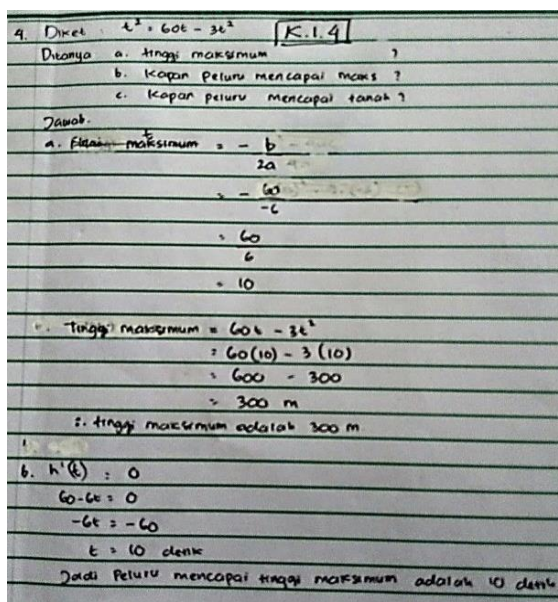 4. Diket : t² = 60t - 3t² K.1.4
Ditanya a. tinggi maksimum ?
b. Kapan peluru mencapai maks ?
c. Kapan peluru mencapai tanah ?
Jawab.
a. t maksimum = - b / 2a
= - 60 / -6
= 60 / 6
= 10
Tinggi maksimum = 60t - 3t²
= 60(10) - 3(10)
= 600 - 300
= 300 m
∴ tinggi maksimum adalah 300 m
b. h'(t) = 0
60-6t = 0
-6t = -60
t = 10 detik
Jadi Peluru mencapai tinggi maksimum adalah 10 detik